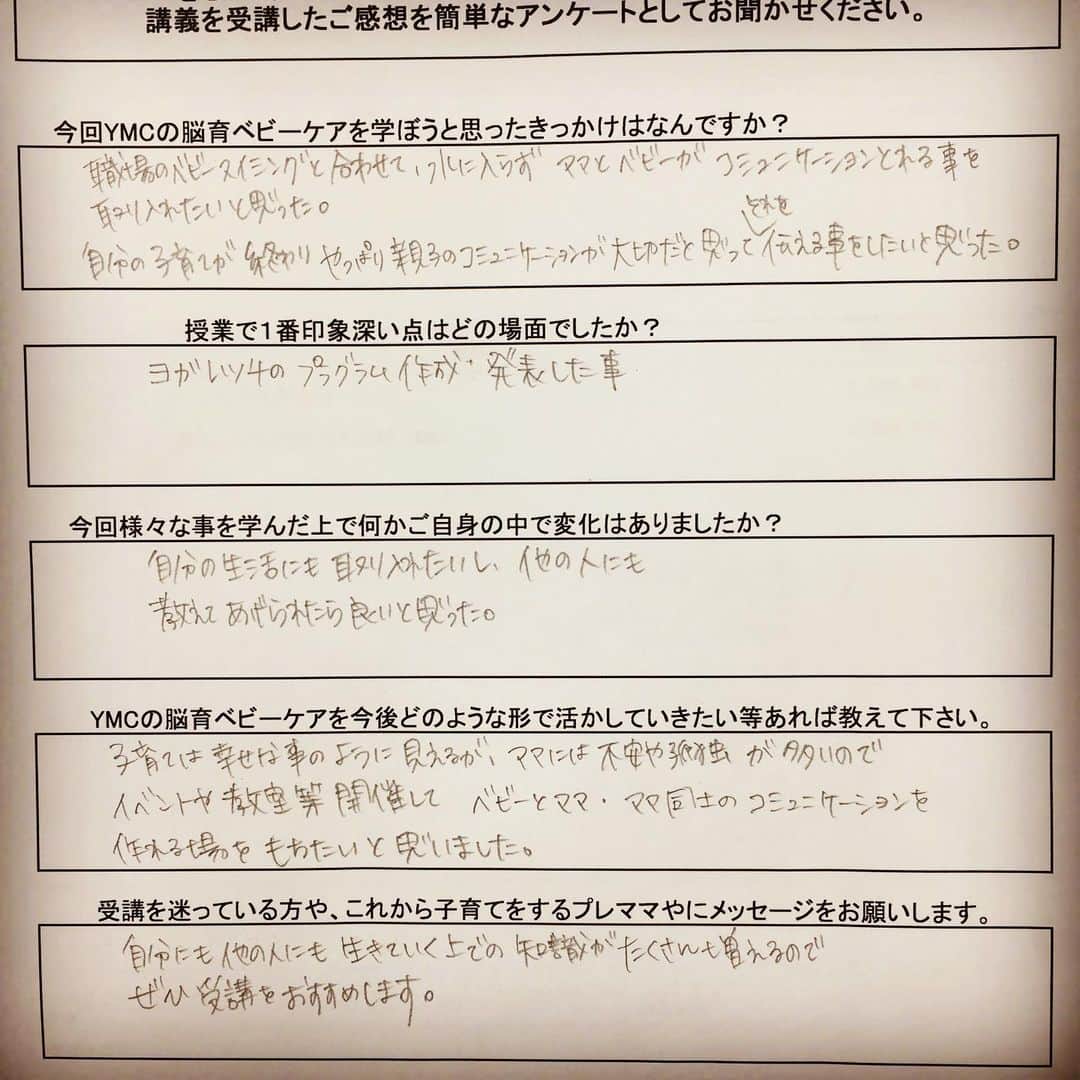 講義を受講したご感想を簡単なアンケートとしてお聞かせください。
今回YMCの脳育ベビーケアを学ぼうと思ったきっかけはなんですか？
職場のベビースイミングと合わせて、水に入らず ママとベビーが コミュニケーションとれる事を
取り入れたいと思った。
それを
自分の子育てが 終わり やっぱり親子のコミュニケーションが大切だと思って伝える事をしたいと思った。
授業で１番印象深い点はどの場面でしたか？
ヨガレッチの プログラム作成・発表した事
今回様々な事を学んだ上で何かご自身の中で変化はありましたか？
自分の生活にも 取り入れたいし、他の人にも
教えて あげられたら良いと思った。
YMCの脳育ベビーケアを今後どのような形で活かしていきたい等あれば教えて下さい。
子育ては 幸せな事のように見えるが、ママには 不安や孤独 が多いので
イベントや 教室等 開催して ベビーとママ・ママ同士の コミュニケーションを
作れる場を もちたいと思いました。
受講を迷っている方や、これから子育てをするプレママやにメッセージをお願いします。
自分にも 他の人にも 生きていく上での 知識が たくさんも増えるので
ぜひ 受講を おすすめします。